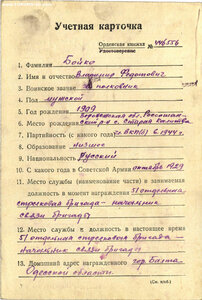 Учетная карточка
Орденская книжка
Удостоверение
№
1. Фамилия Бойко
2. Имя и отчество Владимир Федотович
3. Воинское звание подполковник
4. Пол мужской
5. Год рождения 1909
6. Место рождения Воронежская обл. Россошан-
ский р-н с. Старая Калитва
7. Партийность (с какого года) чл. ВКП(б) с 1944 г.
8. Образование низшее
9. Национальность Русский
10. С какого года в Советской Армии октябрь 1929
11. Место службы (наименование части) и занимаемая
должность в момент награждения 51 отдельная
стрелковая бригада - начальник
связи бригады
12. Место службы и должность в настоящее время
51 отдельная стрелковая бригада -
начальник связи бригады
13. Домашний адрес награжденного гор. Балта
Одесской области.